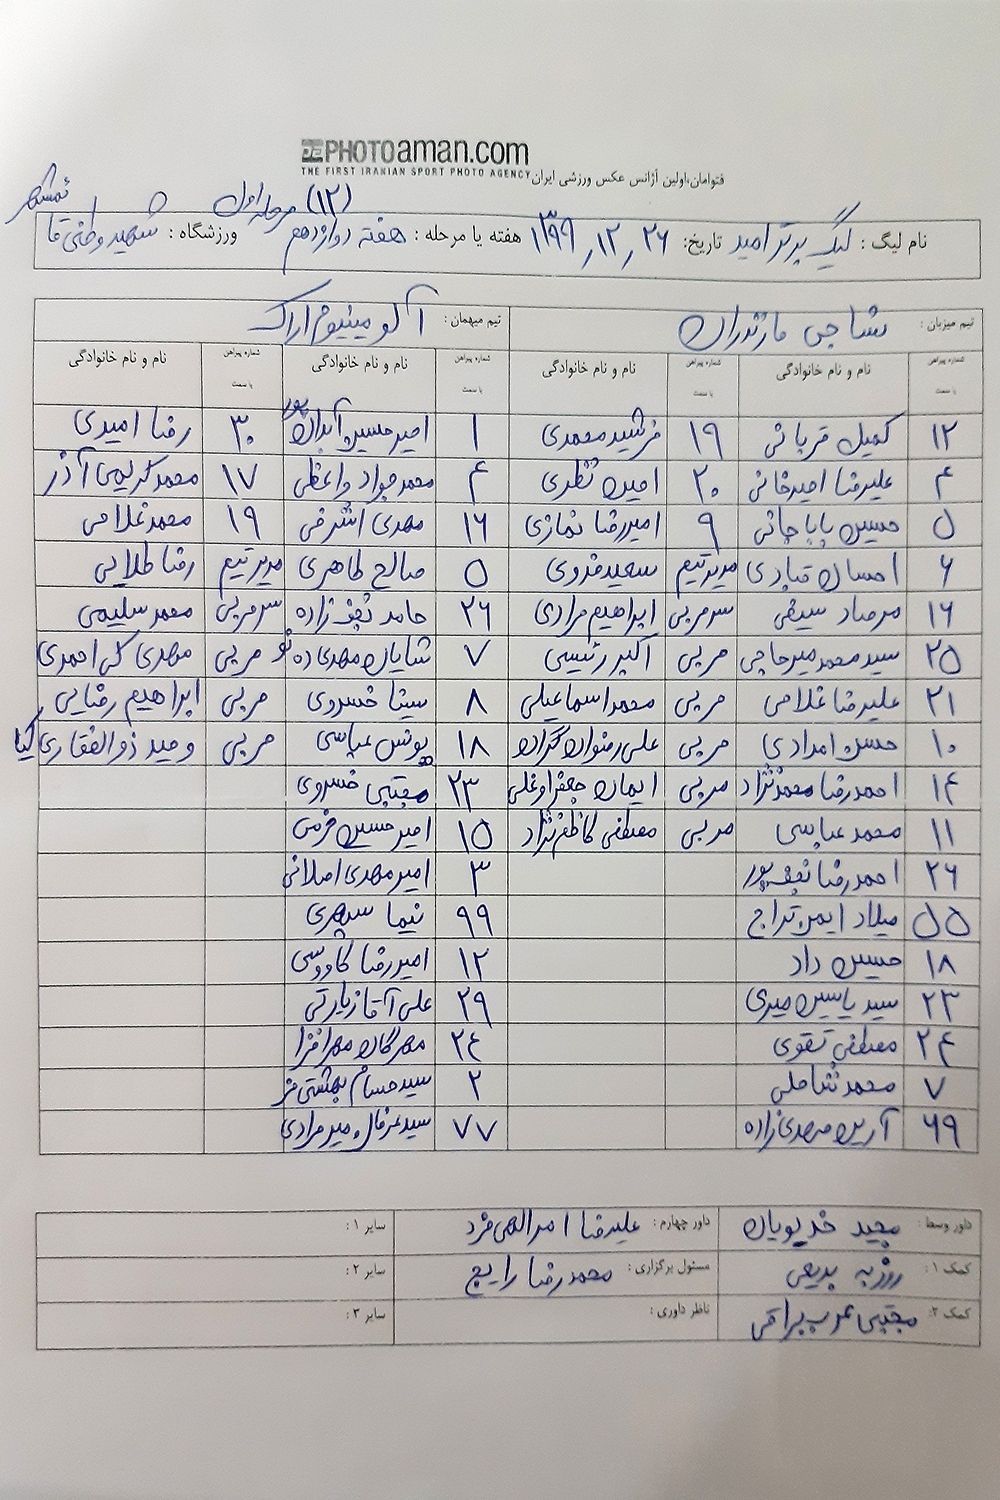 PHOTOaman.com
THE FIRST IRANIAN SPORT PHOTO AGENCY فتوامان،اولین آژانس عکس ورزشی ایران
نام لیگ : لیگ برتر امید تاریخ: ۱۳۹۹/۱۲/۲۶ هفته یا مرحله : هفته دوازدهم (۱۲) مرحله اول ورزشگاه : شهید وطنی قائمشهر
تیم میزبان : نساجی مازندران تیم میهمان : آلومینیوم اراک
شماره پیراهن یا سمت نام و نام خانوادگی شماره پیراهن یا سمت نام و نام خانوادگی شماره پیراهن یا سمت نام و نام خانوادگی شماره پیراهن یا سمت نام و نام خانوادگی
۱۲ کمیل قربانی ۱۹ فرشید محمدی ۱ امیرحسین آبدان پور ۳۰ رضا امیدی
۴ علیرضا امیرخانی ۲۰ امین نظری ۴ محمدجواد واعظی ۱۷ محمد کریمی آذر
۵ حسین باباجانی ۹ امیررضا نمازی ۱۶ مهدی اشرفی ۱۹ محمد غلامی
۶ احسان قبادی مدیر تیم سعید فدوی ۵ صالح طاهری مدیر تیم رضا طلایی
۱۶ مرصاد سیفی سرمربی ابراهیم مرادی ۲۶ حامد نجف زاده سرمربی محمد سلیمی
۲۵ سید محمد میرحاجی مربی اکبر رئیسی ۷ شایان مهدی ده نو مربی مهدی گل احمدی
۲۱ علیرضا غلامی مربی محمد اسماعیلی ۸ سینا خسروی مربی ابراهیم رضایی
۱۰ حسن امدادی مربی علی رضوان گران ۱۸ یونس عباسی مربی وحید ذوالفقاری کیا
۱۴ احمدرضا محمدنژاد مربی ایمان جعفراوغلی ۲۳ مجتبی خسروی
۱۱ محمد عباسی مربی مصطفی کاظم نژاد ۱۵ امیرحسین فرمی
۲۶ احمدرضا نجف پور ۳ امیرمهدی اصلانی
۵۵ میلاد ایمن تراج ۹۹ نیما سپهری
۱۸ حسین داد ۱۲ امیررضا کاووسی
۲۳ سید یاسین میری ۲۹ علی آقازیارتی
۲۴ مصطفی تقوی ۲۴ مهرگان مهرافزا
۷ محمد شاملی ۲ سید حسام بهشتی فر
۶۹ آرین مهدی زاده ۷۷ سید عرفان میرمرادی
داور وسط : مجید خدیویان داور چهارم : علیرضا امرالهی فرد سایر ۱ :
کمک ۱ : روزبه بدیعی مسئول برگزاری : محمدرضا رایج سایر ۲ :
کمک ۲: مجتبی عرب براقی ناظر داوری : سایر ۳ :